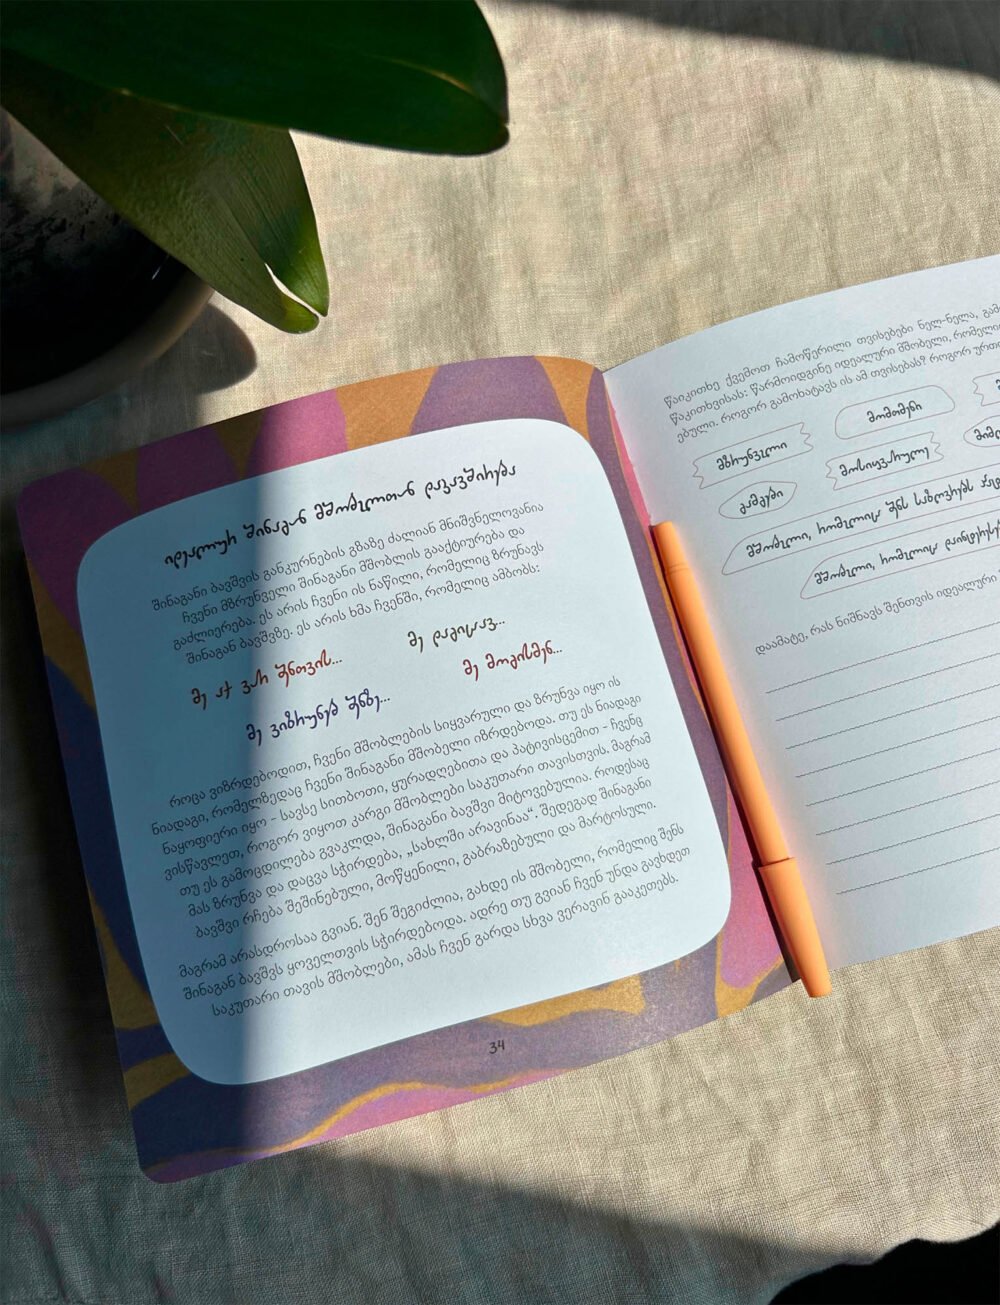 იდეალურ შინაგან მშობელთან დაკავშირება
შინაგანი ბავშვის განკურნების გზაზე ძალიან მნიშვნელოვანია
ჩვენი მზრუნველი შინაგანი მშობლის გააქტიურება და
გაძლიერება. ეს არის ჩვენი ის ნაწილი, რომელიც ზრუნავს
შინაგან ბავშვზე. ეს არის ხმა ჩვენში, რომელიც ამბობს:
მე აქ ვარ შენთვის...
მე დაგიცავ...
მე ვიზრუნებ შენზე...
მე მოგისმენ...
როცა ვიზრდებოდით, ჩვენი მშობლების სიყვარული და ზრუნვა იყო ის
ნიადაგი, რომელზედაც ჩვენი შინაგანი მშობელი იზრდებოდა. თუ ეს ნიადაგი
ნაყოფიერი იყო - სავსე სითბოთი, ყურადღებითა და პატივისცემით - ჩვენც
ვისწავლეთ, როგორ ვიყოთ კარგი მშობლები საკუთარი თავისთვის. მაგრამ
თუ ეს გამოცდილება გვაკლდა, შინაგანი ბავშვი მიტოვებულია. როდესაც
მას ზრუნვა და დაცვა სჭირდება, „სახლში არავინაა“. შედეგად შინაგანი
ბავშვი რჩება შეშინებული, მოწყენილი, გაბრაზებული და მარტოსული.
მაგრამ არასდროსაა გვიან. შენ შეგიძლია, გახდე ის მშობელი, რომელიც შენს
შინაგან ბავშვს ყოველთვის სჭირდებოდა. ადრე თუ გვიან ჩვენ უნდა გავხდეთ
საკუთარი თავის მშობლები, ამას ჩვენ გარდა სხვა ვერავინ გააკეთებს.
34
წაიკითხე ქვემოთ ჩამოწერილი თვისებები ნელ-ნელა,
წაკითხვისას: წარმოიდგინე იდეალური მშობელი,
ებული. როგორ გამოხატავს ის ამ თვისებას? როგორ
მზრუნველი
მომთმენი
გამგები
მოსიყვარულე
მშობელი, რომელიც შენს საზღვრებს
მშობელი, რომელიც
დაამატე, რას ნიშნავს შენთვის იდეალური